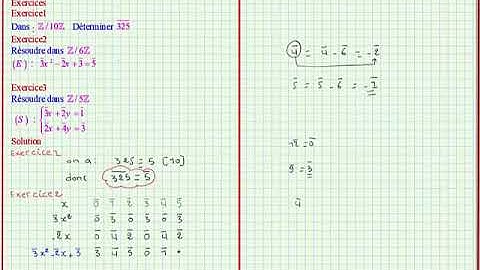 Exercices
Exercice1
Dans : ℤ/10ℤ Déterminer \overline{325}
Exercice2
Résoudre dans ℤ/6ℤ
(E) : 3̄x² − 2̄x + 3̄ = 5̄
Exercice3
Résoudre dans ℤ/5ℤ
(S) : { 3̄x + 2̄y = 1̄
2̄x + 4̄y = 3̄
Solution
Exercice 1
on a : 325 ≡ 5 [10]
donc \overline{325} = 5̄
Exercice 2
x 0̄ 1̄ 2̄ 3̄ 4̄ 5̄
3̄x² 0̄ 3̄ 0̄ 3̄ 0̄ 3̄
-2̄x 0̄ 4̄ 2̄ 0̄ 4̄ 2̄
3̄x² - 2̄x + 3̄ 3̄ 4̄ 5̄ 0̄ 1̄
4̄ = 4̄ - 6̄ = -2̄
5̄ = 5̄ - 6̄ = -1̄
12 = 0̄
9 = 3̄
4̄